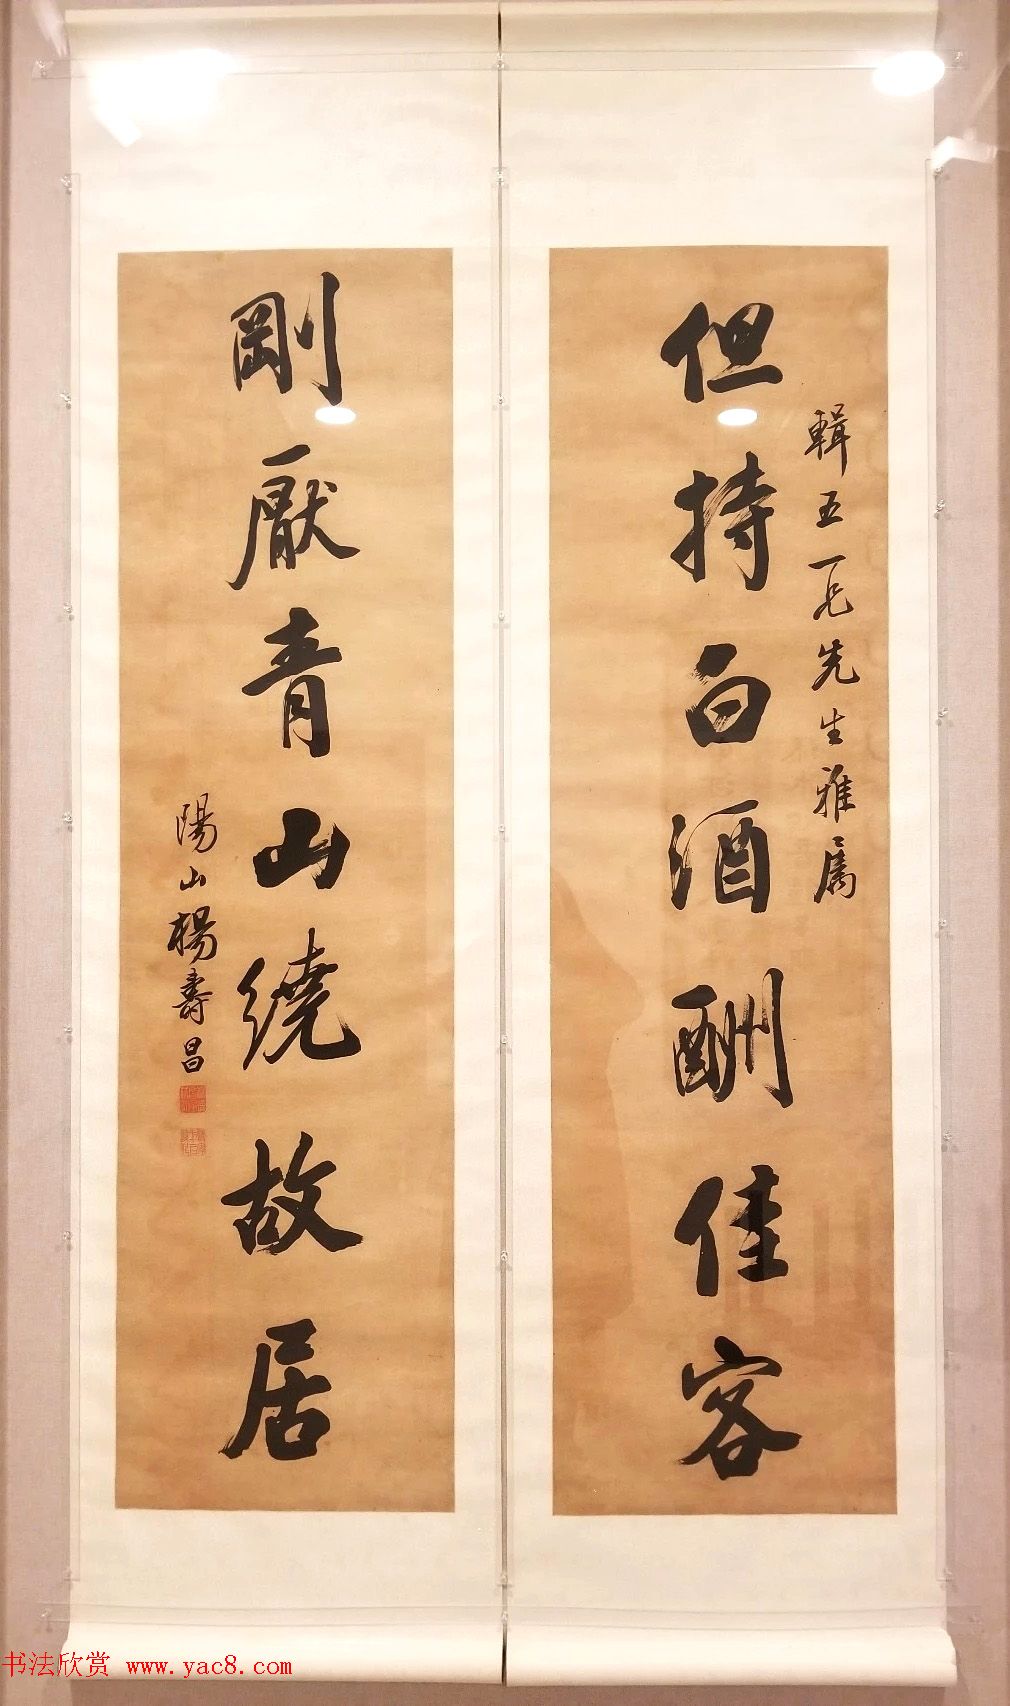 輯五一兄先生雅屬
但持白酒酬佳客
剛厭青山繞故居
陽山楊壽昌
书法欣赏 www.yac8.com